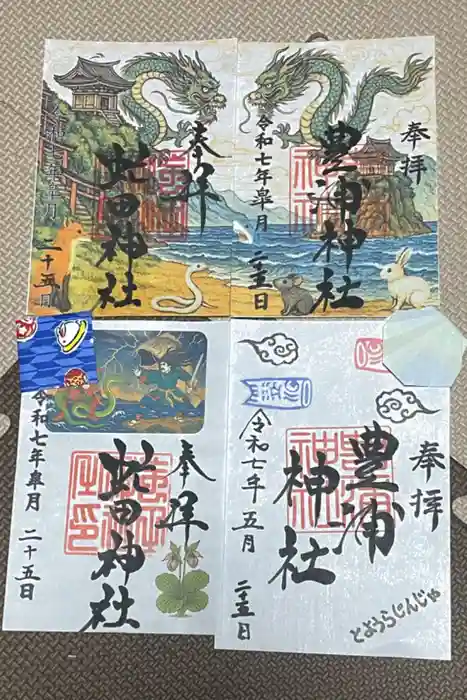 奉拝
虻田神社
二十五日
奉拝
豊浦神社
令和七年皐月
二十五日
奉拝
虻田神社
令和七年皐月 二十五日
奉拝
豊浦
神社
令和七年五月
二十五日
とようらじんじゃ